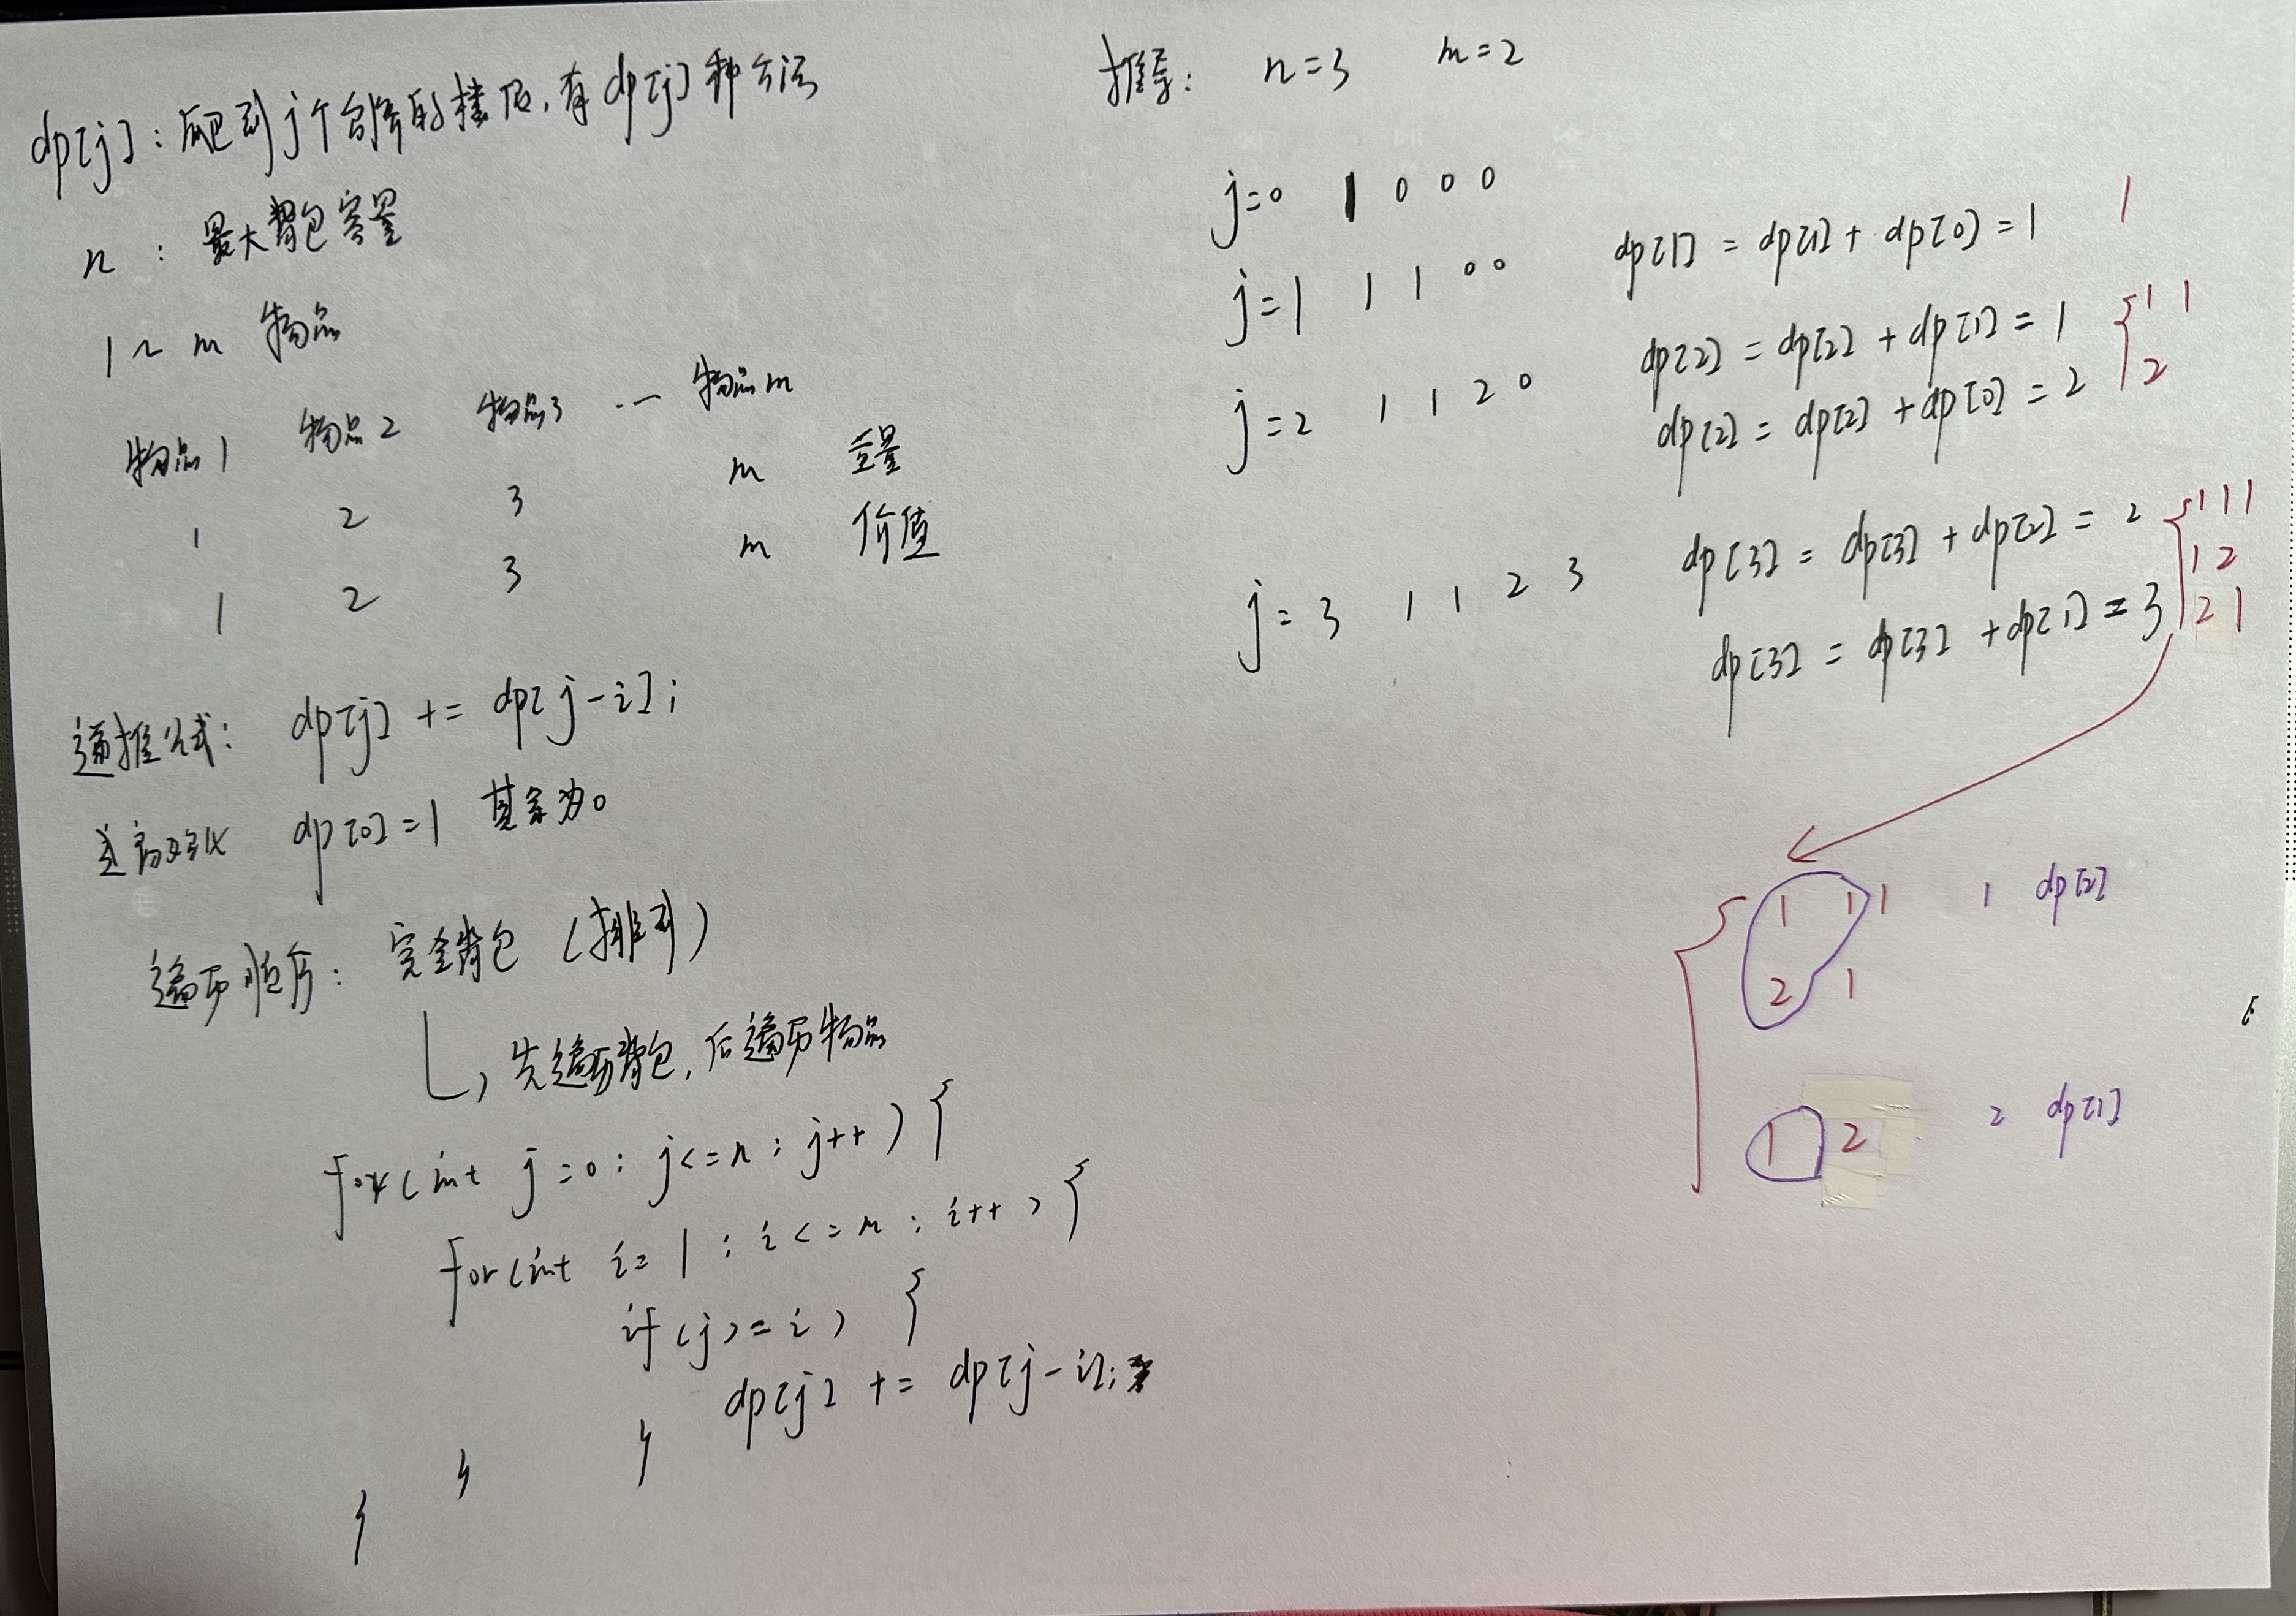 dp[j]：爬到j个台阶的楼顶，有dp[j]种方法
n ：最大背包容量
1~m 物品
物品1 物品2 物品3 … 物品m
1 2 3 m 重量
1 2 3 m 价值
递推公式： dp[j] += dp[j-i];
初始化 dp[0]=1 其余为0
遍历顺序： 完全背包（排列）
先遍历背包，后遍历物品
for(int j=0; j<=n; j++){
for(int i=1; i<=m; i++){
if(j>=i) {
dp[j] += dp[j-i];
}
}
}
推导： n=3 m=2
j=0 1 0 0 0
j=1 1 1 0 0 dp[1] = dp[1] + dp[0] = 1 1
j=2 1 1 2 0 dp[2] = dp[2] + dp[1] = 1 { 1 1
dp[2] = dp[2] + dp[0] = 2 2
j=3 1 1 2 3 dp[3] = dp[3] + dp[2] = 2 { 1 1 1
1 2
dp[3] = dp[3] + dp[1] = 3 2 1
{ 1 1 1 1 dp[2]
2 1
1 2 2 dp[1]